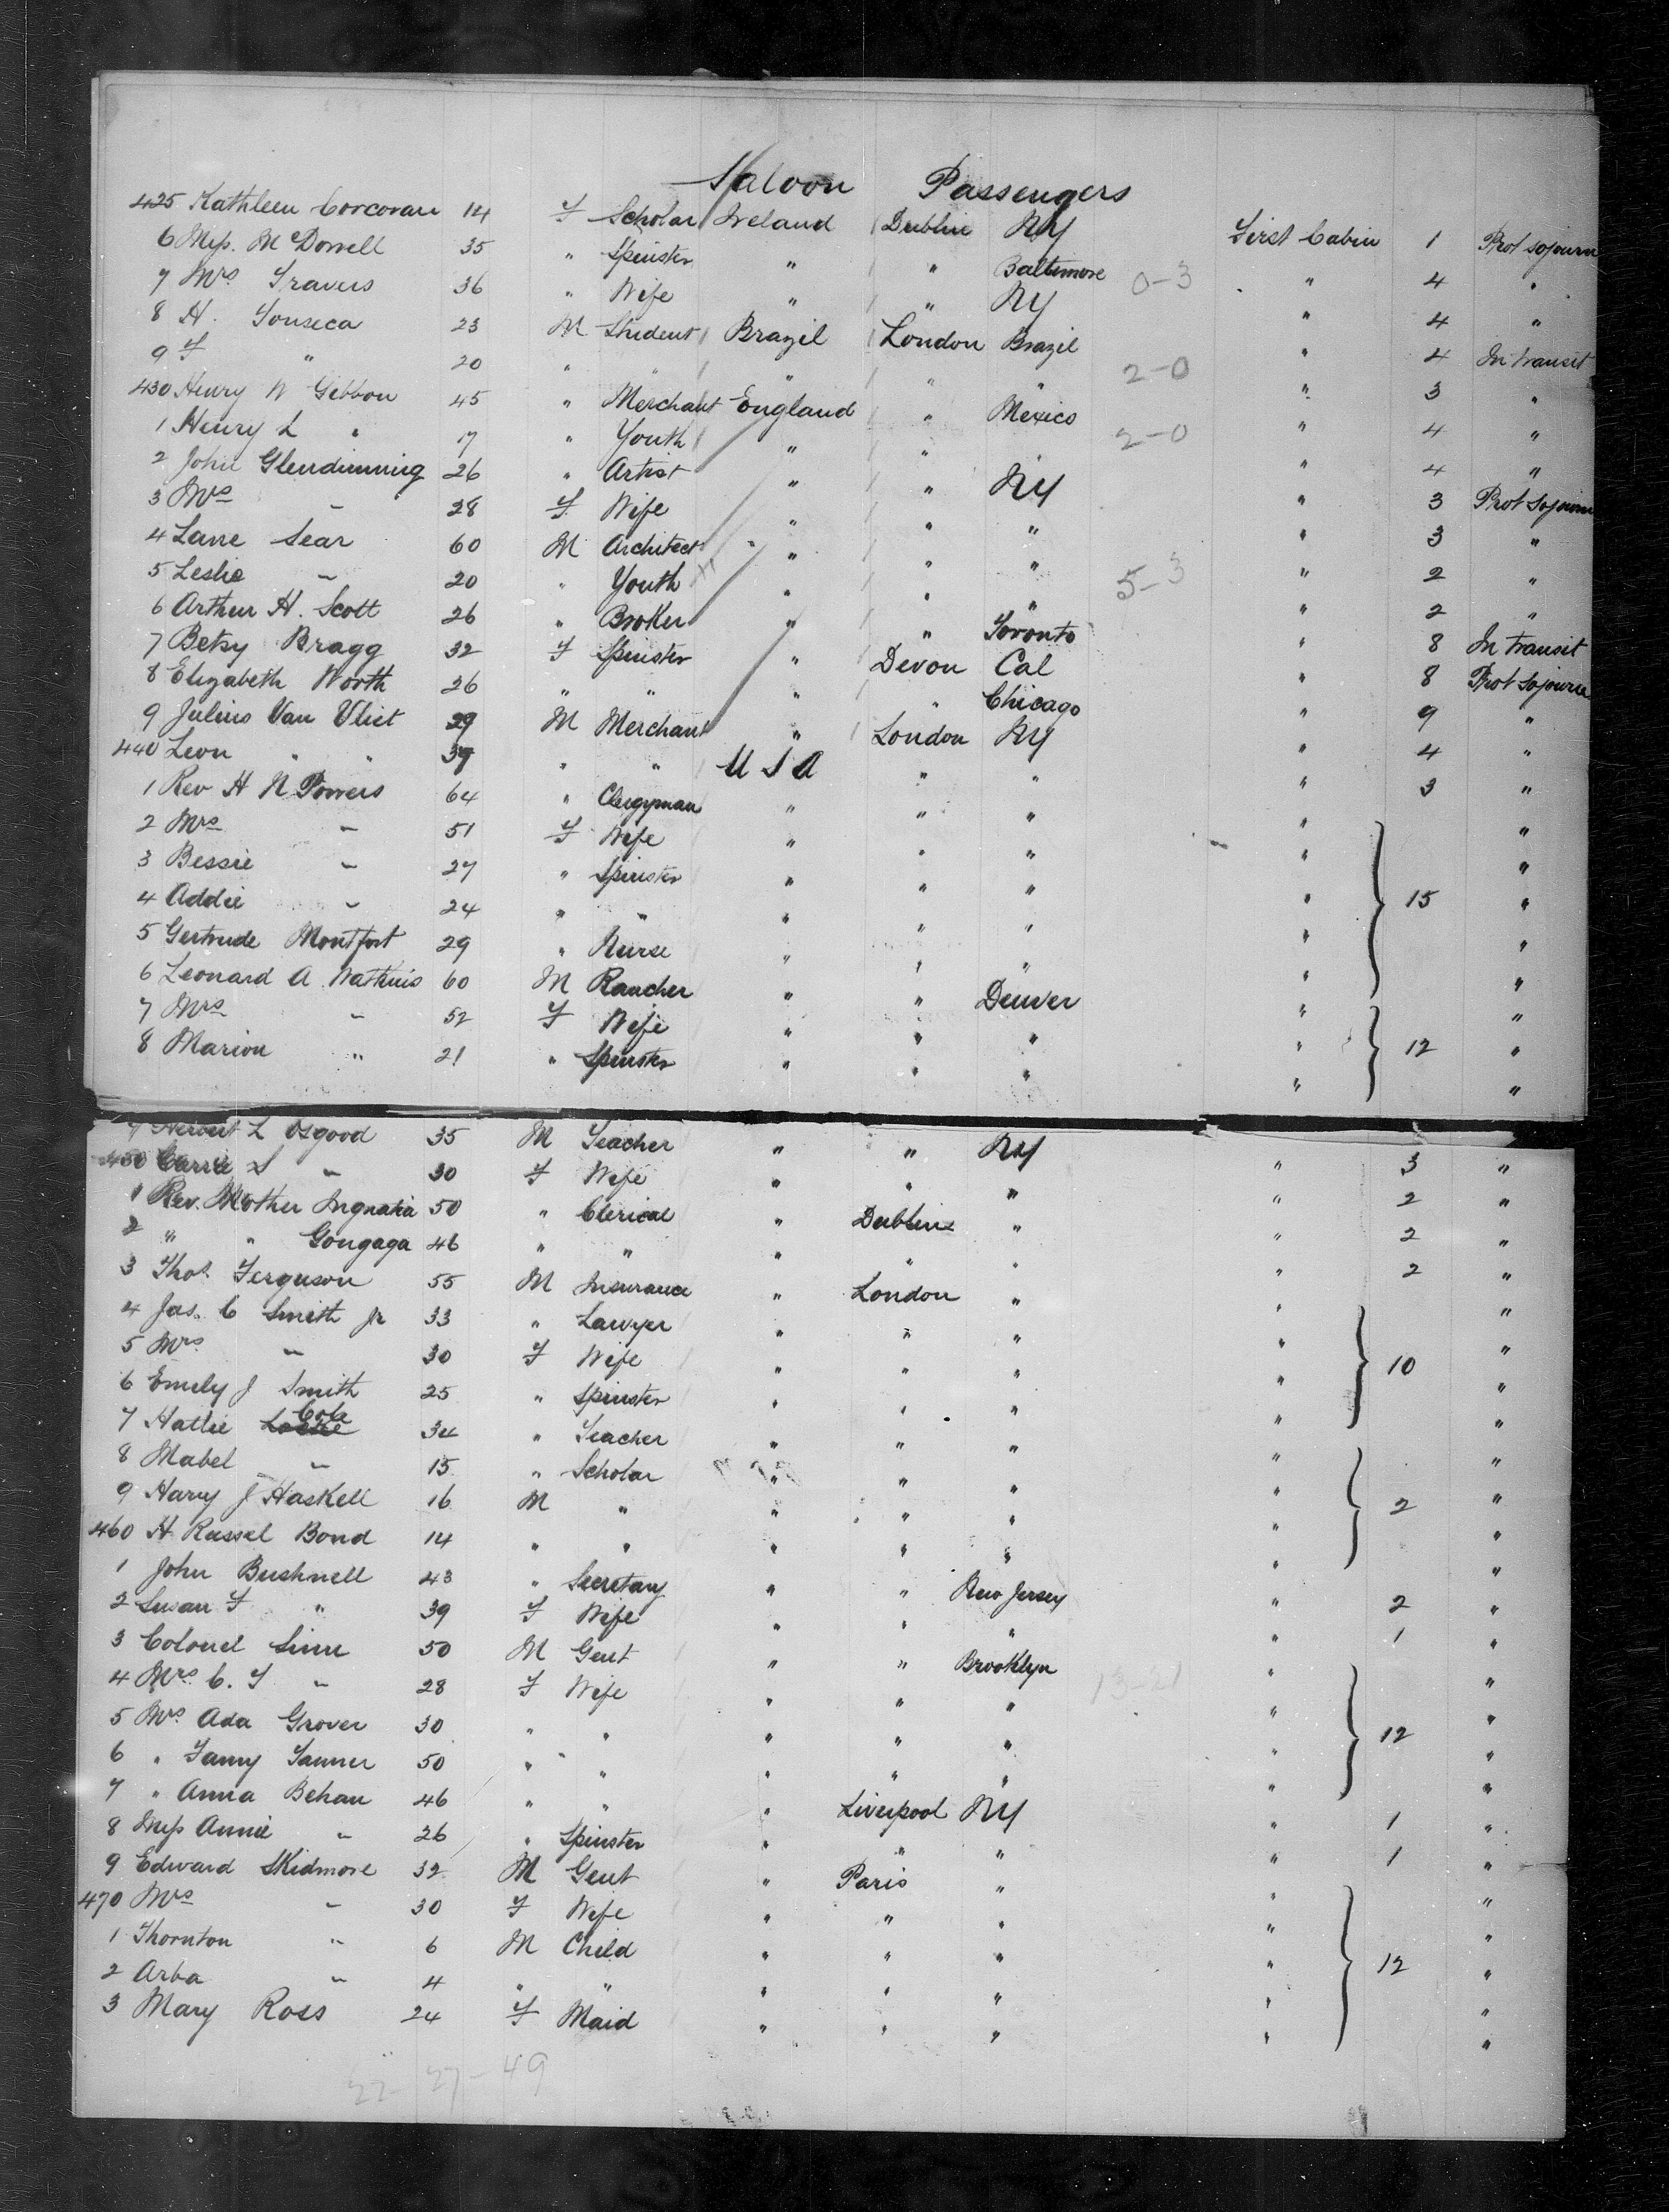 Saloon Passengers
425 Kathleen Corcoran 14 F Scholar Ireland Dublin NY First Cabin 1 Prot sojourn
6 Miss. McDowell 35 " Spinster " " Baltimore 0-3 " 4 "
7 Mrs Travers 36 " Wife " " NY " 4 "
8 H. Fonseca 23 M Student Brazil London Brazil " 4 In transit
9 F " 20 " " " " " 2-0 " 3 "
430 Henry W Gibbon 45 " Merchant England " Mexico " 4 "
1 Henry L " 17 " Youth " " " 2-0 " 4 "
2 John Glendinning 26 " Artist " " NY " 3 Prot Sojourn
3 Mrs " 28 F Wife " " " " 3 "
4 Lane Sear 60 M Architect " " " " 2 "
5 Leslie " 20 " Youth " " " 5-3 " 2 "
6 Arthur H. Scott 26 " Broker " " Toronto " 8 In transit
7 Betsy Bragg 32 F Spinster " Devon Cal " 8 Prot Sojourn
8 Elizabeth North 26 " " " " Chicago " 9 "
9 Julius Van Vliet 29 M Merchant " London NY " 4 "
440 Leon " " 39 " " U S A " " " 3 "
1 Rev H N Powers 64 " Clergyman " " " " "
2 Mrs " 51 F Wife " " " " "
3 Bessie " 27 " Spinster " " " " 15 "
4 Addie " 24 " " " " " " "
5 Gertrude Montfort 29 " Nurse " " " " "
6 Leonard A Watkins 60 M Rancher " " Denver " "
7 Mrs " 52 F Wife " " " " 12 "
8 Marion " 21 " Spinster " " " " "
9 Herbert L Osgood 35 M Teacher " " NY " 3 "
450 Carrie S " 30 F Wife " " " " 2 "
1 Rev. Mother Ingnatia 50 " Clerical " Dublin " " 2 "
2 " " Gongaga 46 " " " " " " 2 "
3 Thos. Ferguson 55 M Insurance " London " " "
4 Jas. C Smith Jr 33 " Lawyer " " " " "
5 Mrs " 30 F Wife " " " " 10 "
6 Emily J Smith 25 " Spinster " " " " "
7 Hattie Cole 34 " Teacher " " " " "
8 Mabel " 15 " Scholar " " " " "
9 Harry J Haskell 16 M " " " " " 2 "
460 H Russel Bond 14 " " " " " " "
1 John Bushnell 43 " Secretary " " New Jersey " 2 "
2 Susan F " 39 F Wife " " " " 1 "
3 Colonel Sinn 50 M Gent " " Brooklyn " "
4 Mrs C. T " 28 F Wife " " " 13-21 " "
5 Mrs Ada Grover 30 " " " " " " 12 "
6 " Fanny Tanner 50 " " " " " " "
7 " Anna Behan 46 " " " Liverpool NY " 1 "
8 Miss Annie " 26 " Spinster " " " " 1 "
9 Edward Skidmore 32 M Gent " Paris " " "
470 Mrs " 30 F Wife " " " " "
1 Thornton " 6 M Child " " " " 12 "
2 Arba " 4 " " " " " " "
3 Mary Ross 24 F Maid " " " " "
22-27-49